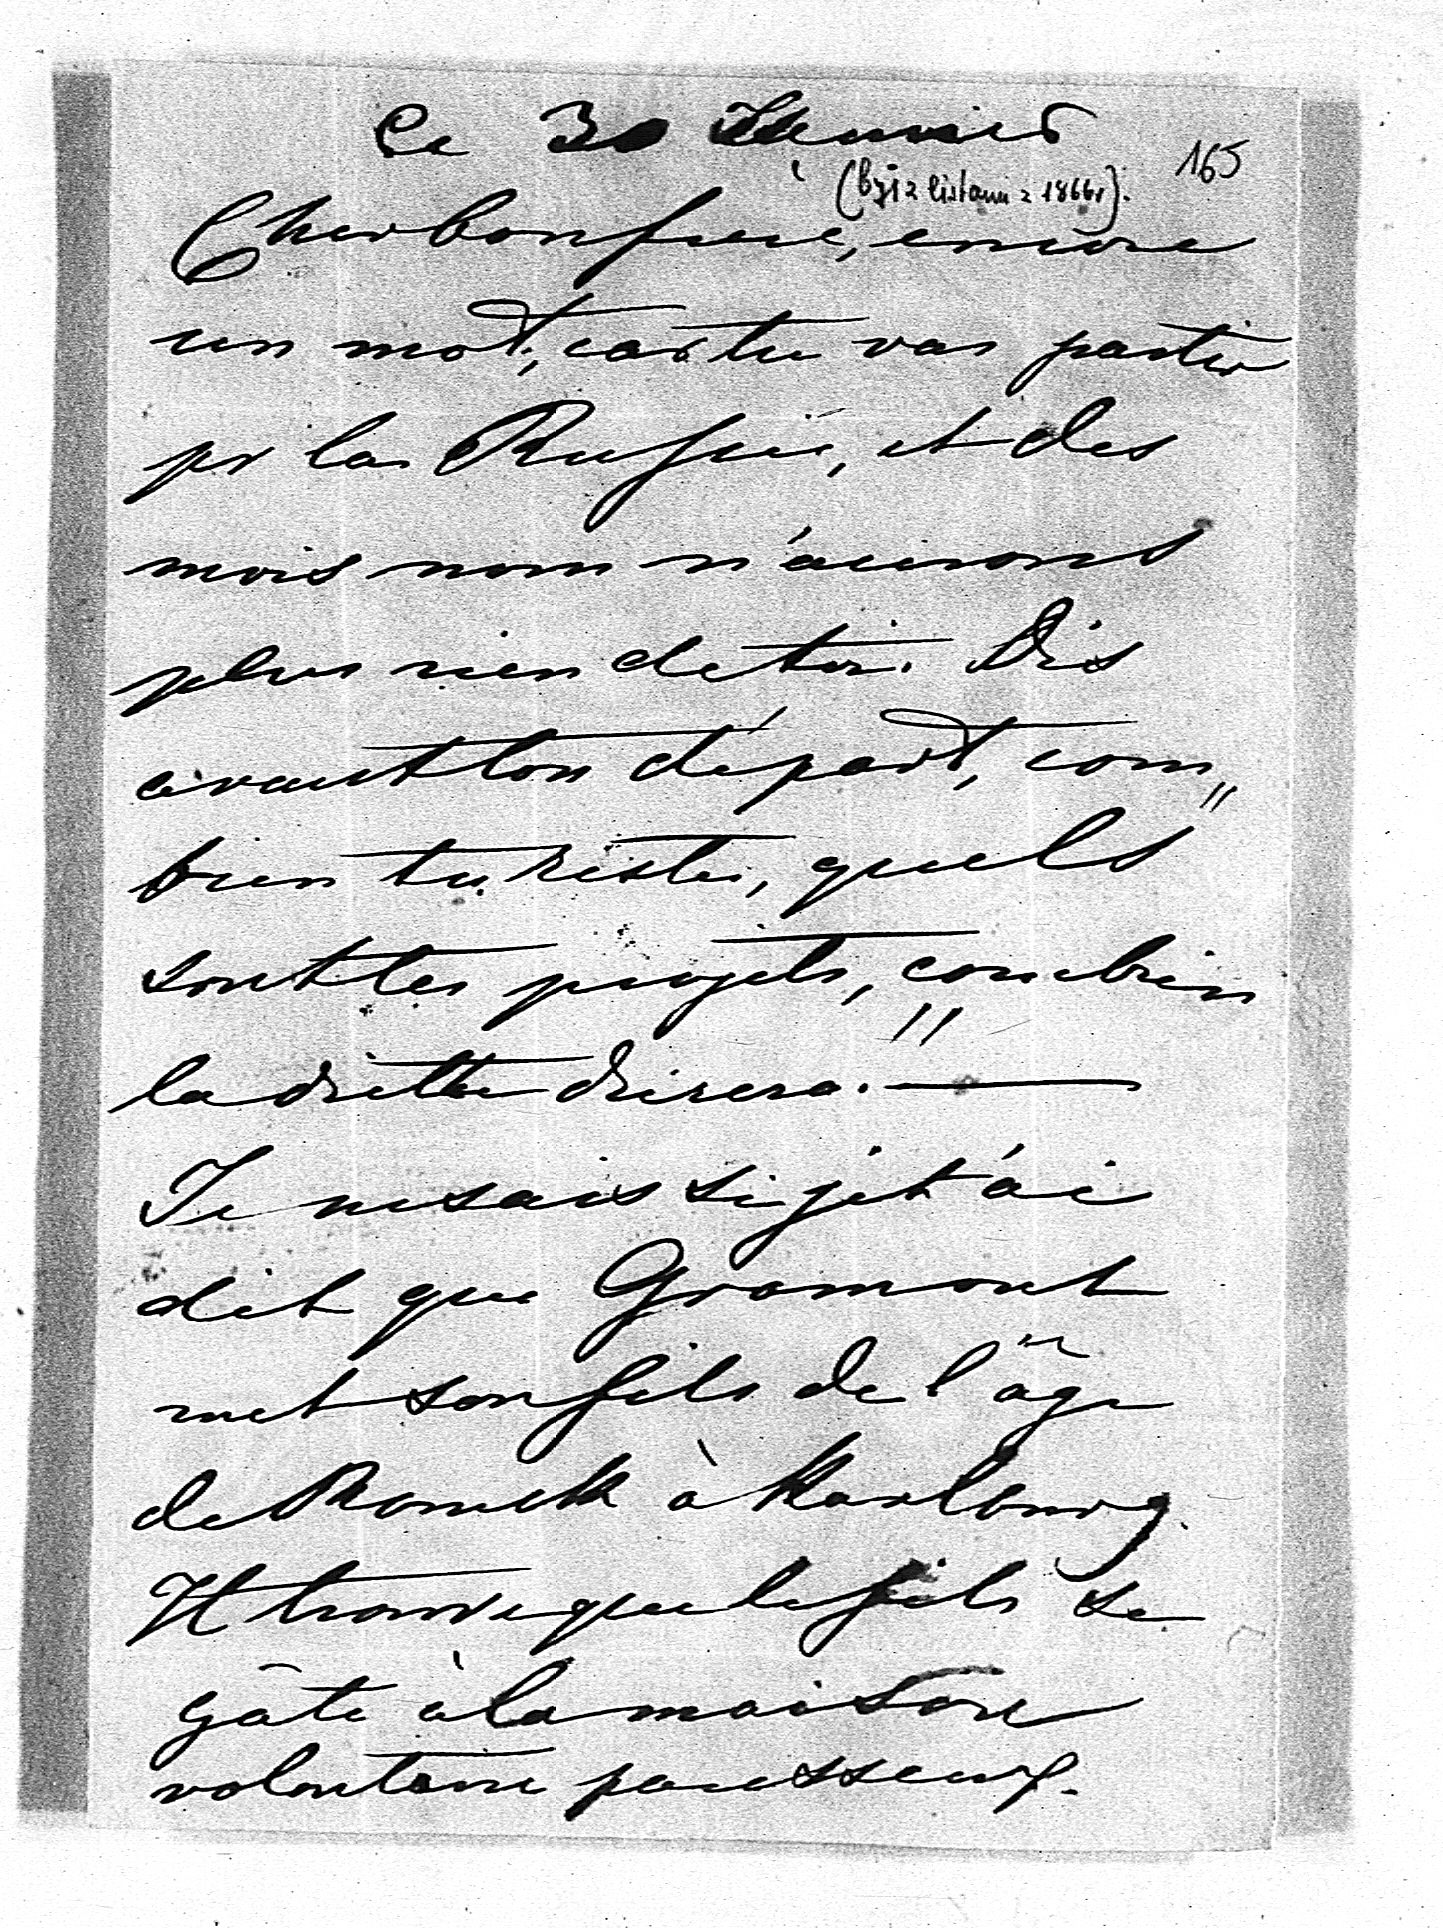 Ce 30 Janvier
165
(był z listami z 1866r).
Cher bon frère, encore
un mot, car tu vas partir
pr la Russie, et des
mois nous n'aurons
plus rien de toi. Dis
avant ton départ, com„
bien tu restes, quels
sont tes projets, combien
la diette durera. —
Je ne sais si je t'ai
dit que Gramont
met son fils de l'âge
de Romek à Kalksbourg.
Il trouve que le fils se
gâte à la maison
volontaire paresseux.